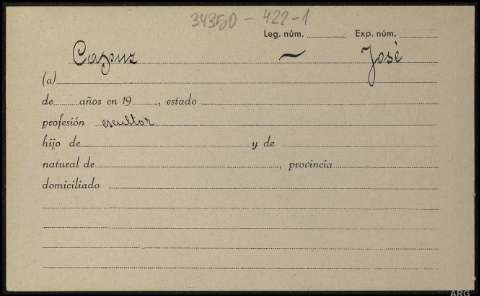 34350-422-1
Leg. núm. Exp. núm.
Capuz ~ José
(a)
de años en 19 , estado
profesión escultor
hijo de y de
natural de , provincia
domiciliado
ARG